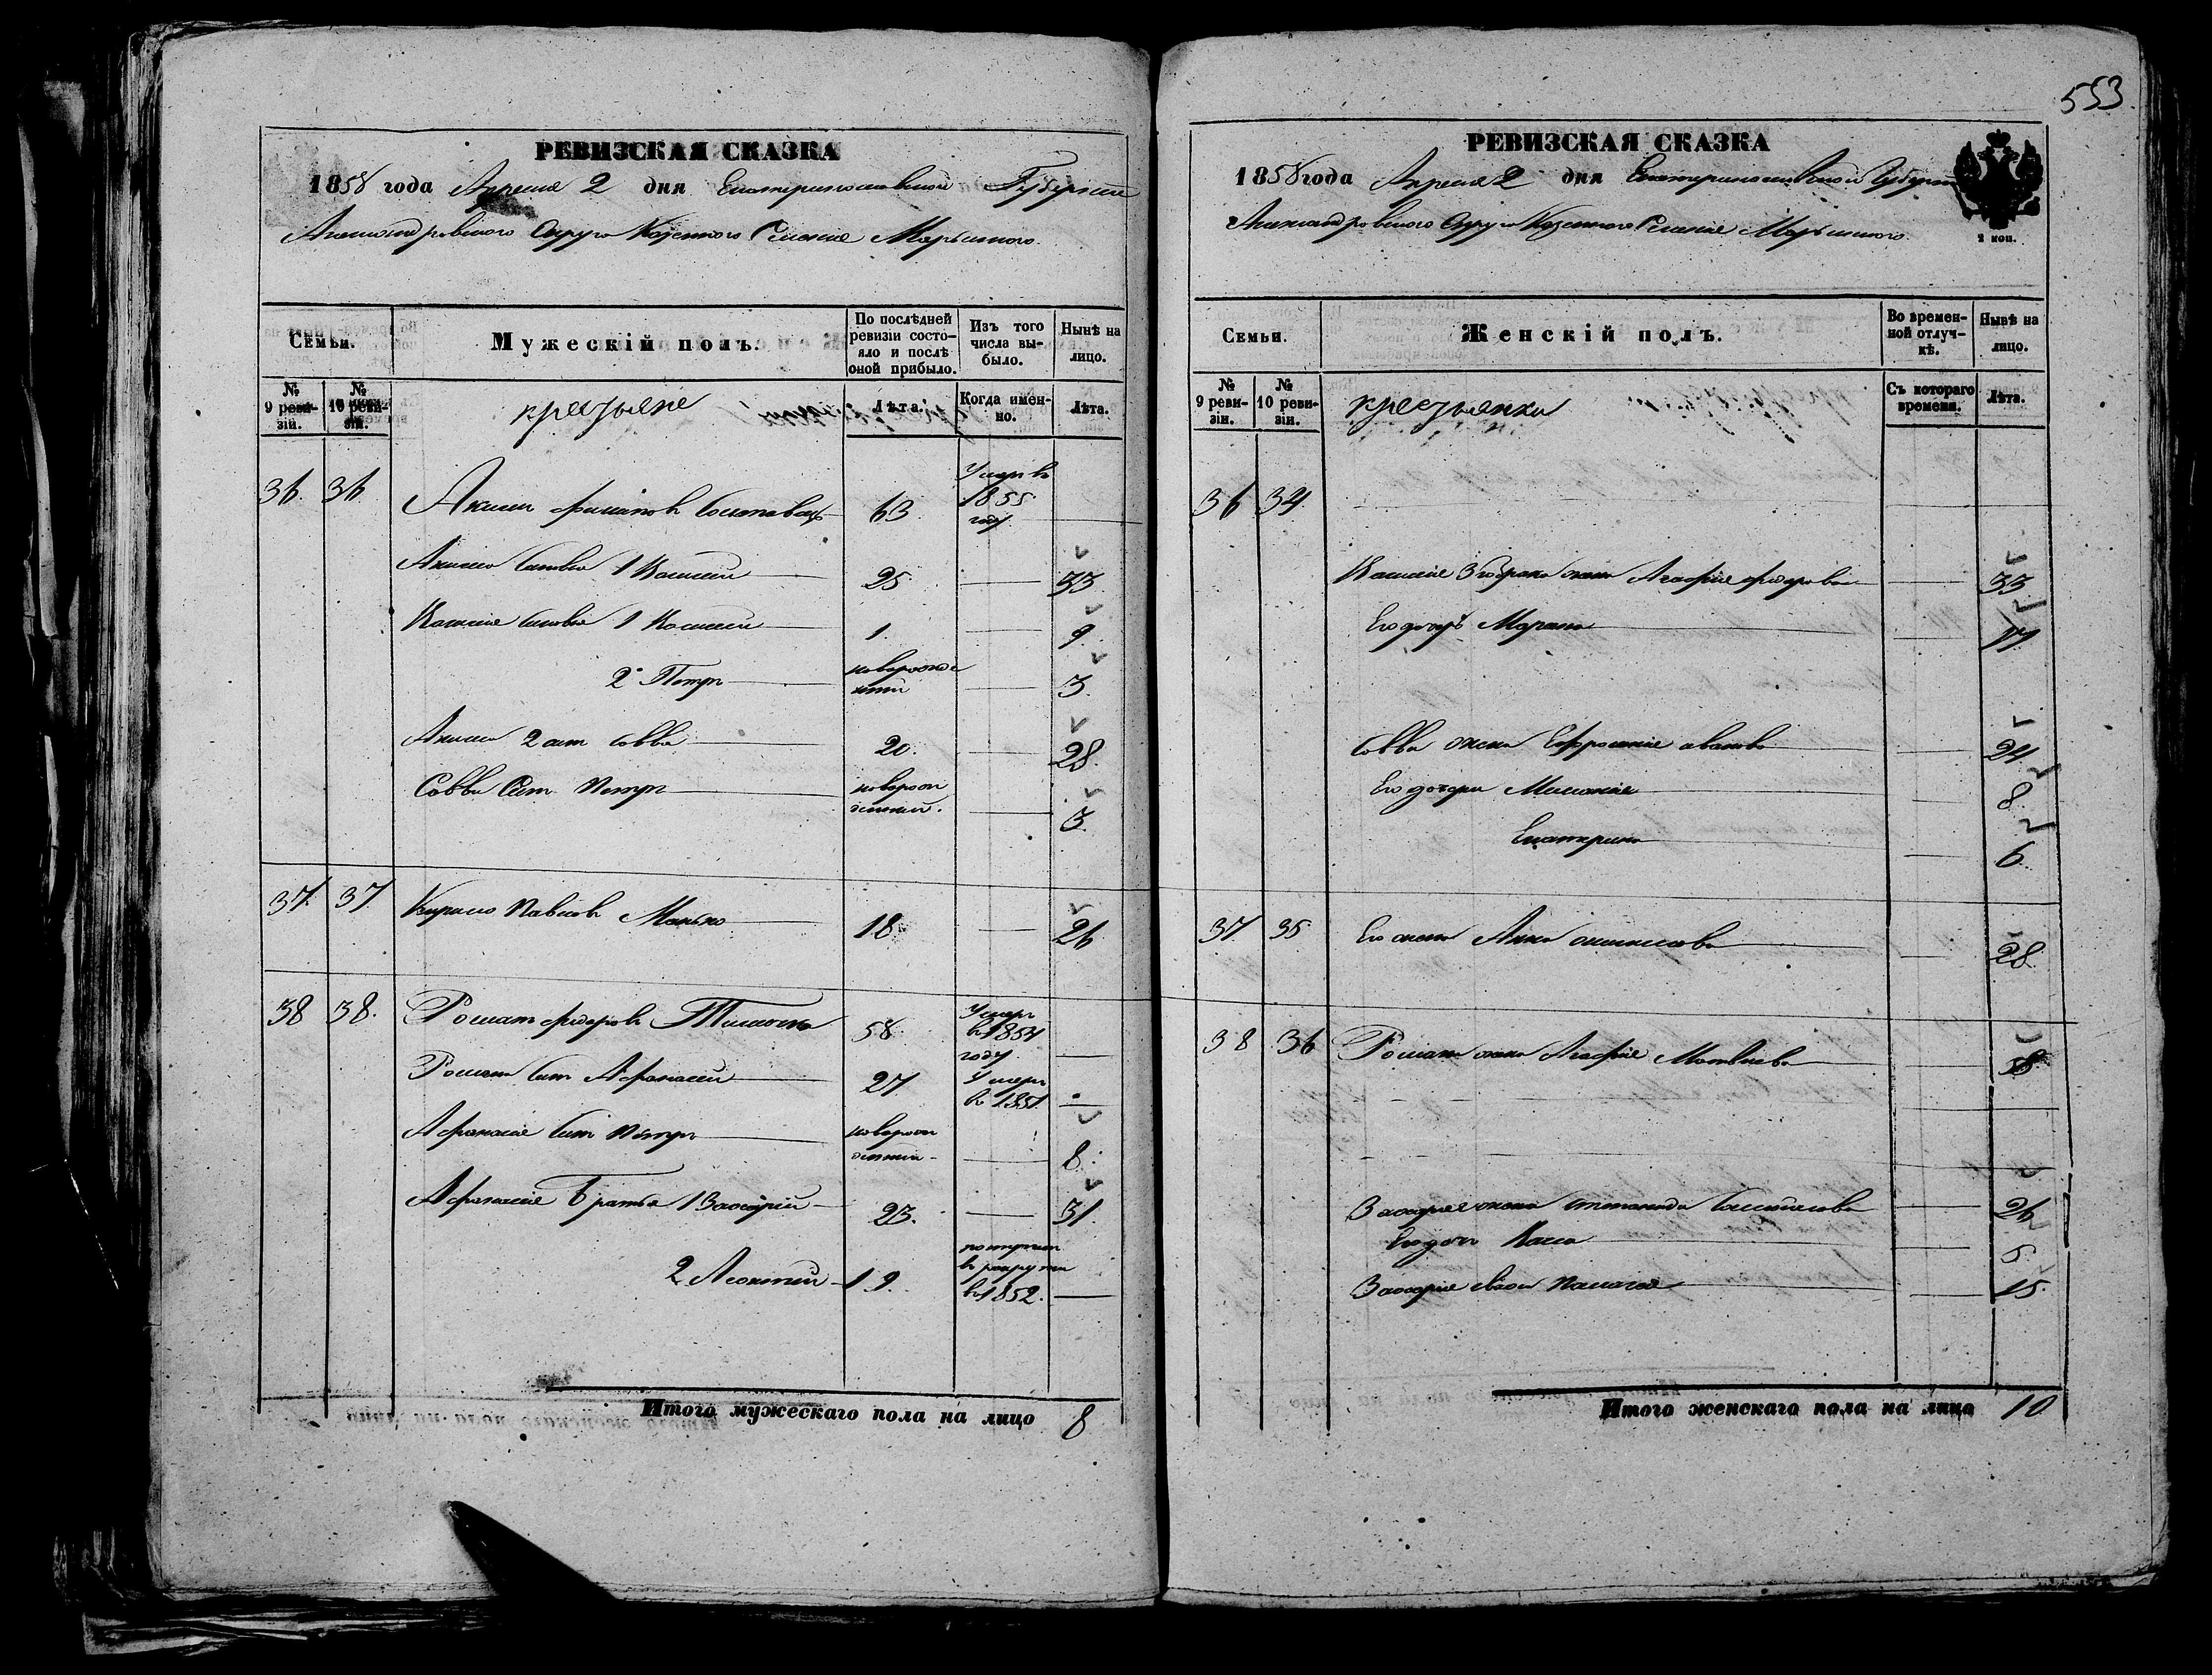 РЕВИЗСКАЯ СКАЗКА
1858 года Апреля 2 дня Екатеринославской Губернии
Александровского Округа Казенного Селения Марьинского.
Семьи.
Мужескій полъ.
По послѣдней ревизіи состояло и послѣ оной прибыло.
Изъ того числа выбыло.
Нынѣ на лицо.
№ 9 ревизіи.
№ 10 ревизіи.
крестьяне
Лѣта.
Когда именно.
Лѣта.
36. 36. Аким Филипов 63. Умер в 1855 году
Акима 1 Василий 25 33.
Василия 1 Василий 1. 9.
2й Петр новорожденный 3.
Акима 2 сын Савва 20. 28.
Саввы Сын Петр новорожденный. 3.
37. 37 Кирило Павлов Манько 18. 26
38 38. Роман Федоров 58. Умер в 1854 году
Романа Сын Афанасий 27 Умер в 1851
Афанасия Сын Петр новорожденный 8.
Афанасия Братья 1 Захарий 23. 31.
2 Леонтий 19. в рекруты в 1852.
Итого мужескаго пола на лицо 8
553.
РЕВИЗСКАЯ СКАЗКА
1858 года Апреля 2 дня Екатеринославской Губернии
Александровского Округа Казенного Селения Марьинского.
2 коп.
Семьи.
Женскій полъ.
Во временной отлучкѣ.
Нынѣ на лицо.
№ 9 ревизіи.
№ 10 ревизіи.
крестьянки
Съ котораго времени.
Лѣта.
36 34.
Василия жена Агафия Федорова 33
Его дочь Марина
Саввы жена Ефросиния Иванова 24
Его дочери Мелания 8.
Екатерина 6.
37 35 Его жена Анна 28
38 36 Романа жена Агафия Матвиева 58.
Захария жена Степанида 26
Его дочь 5
Захария Пелагея 15.
Итого женскаго пола на лицо 10